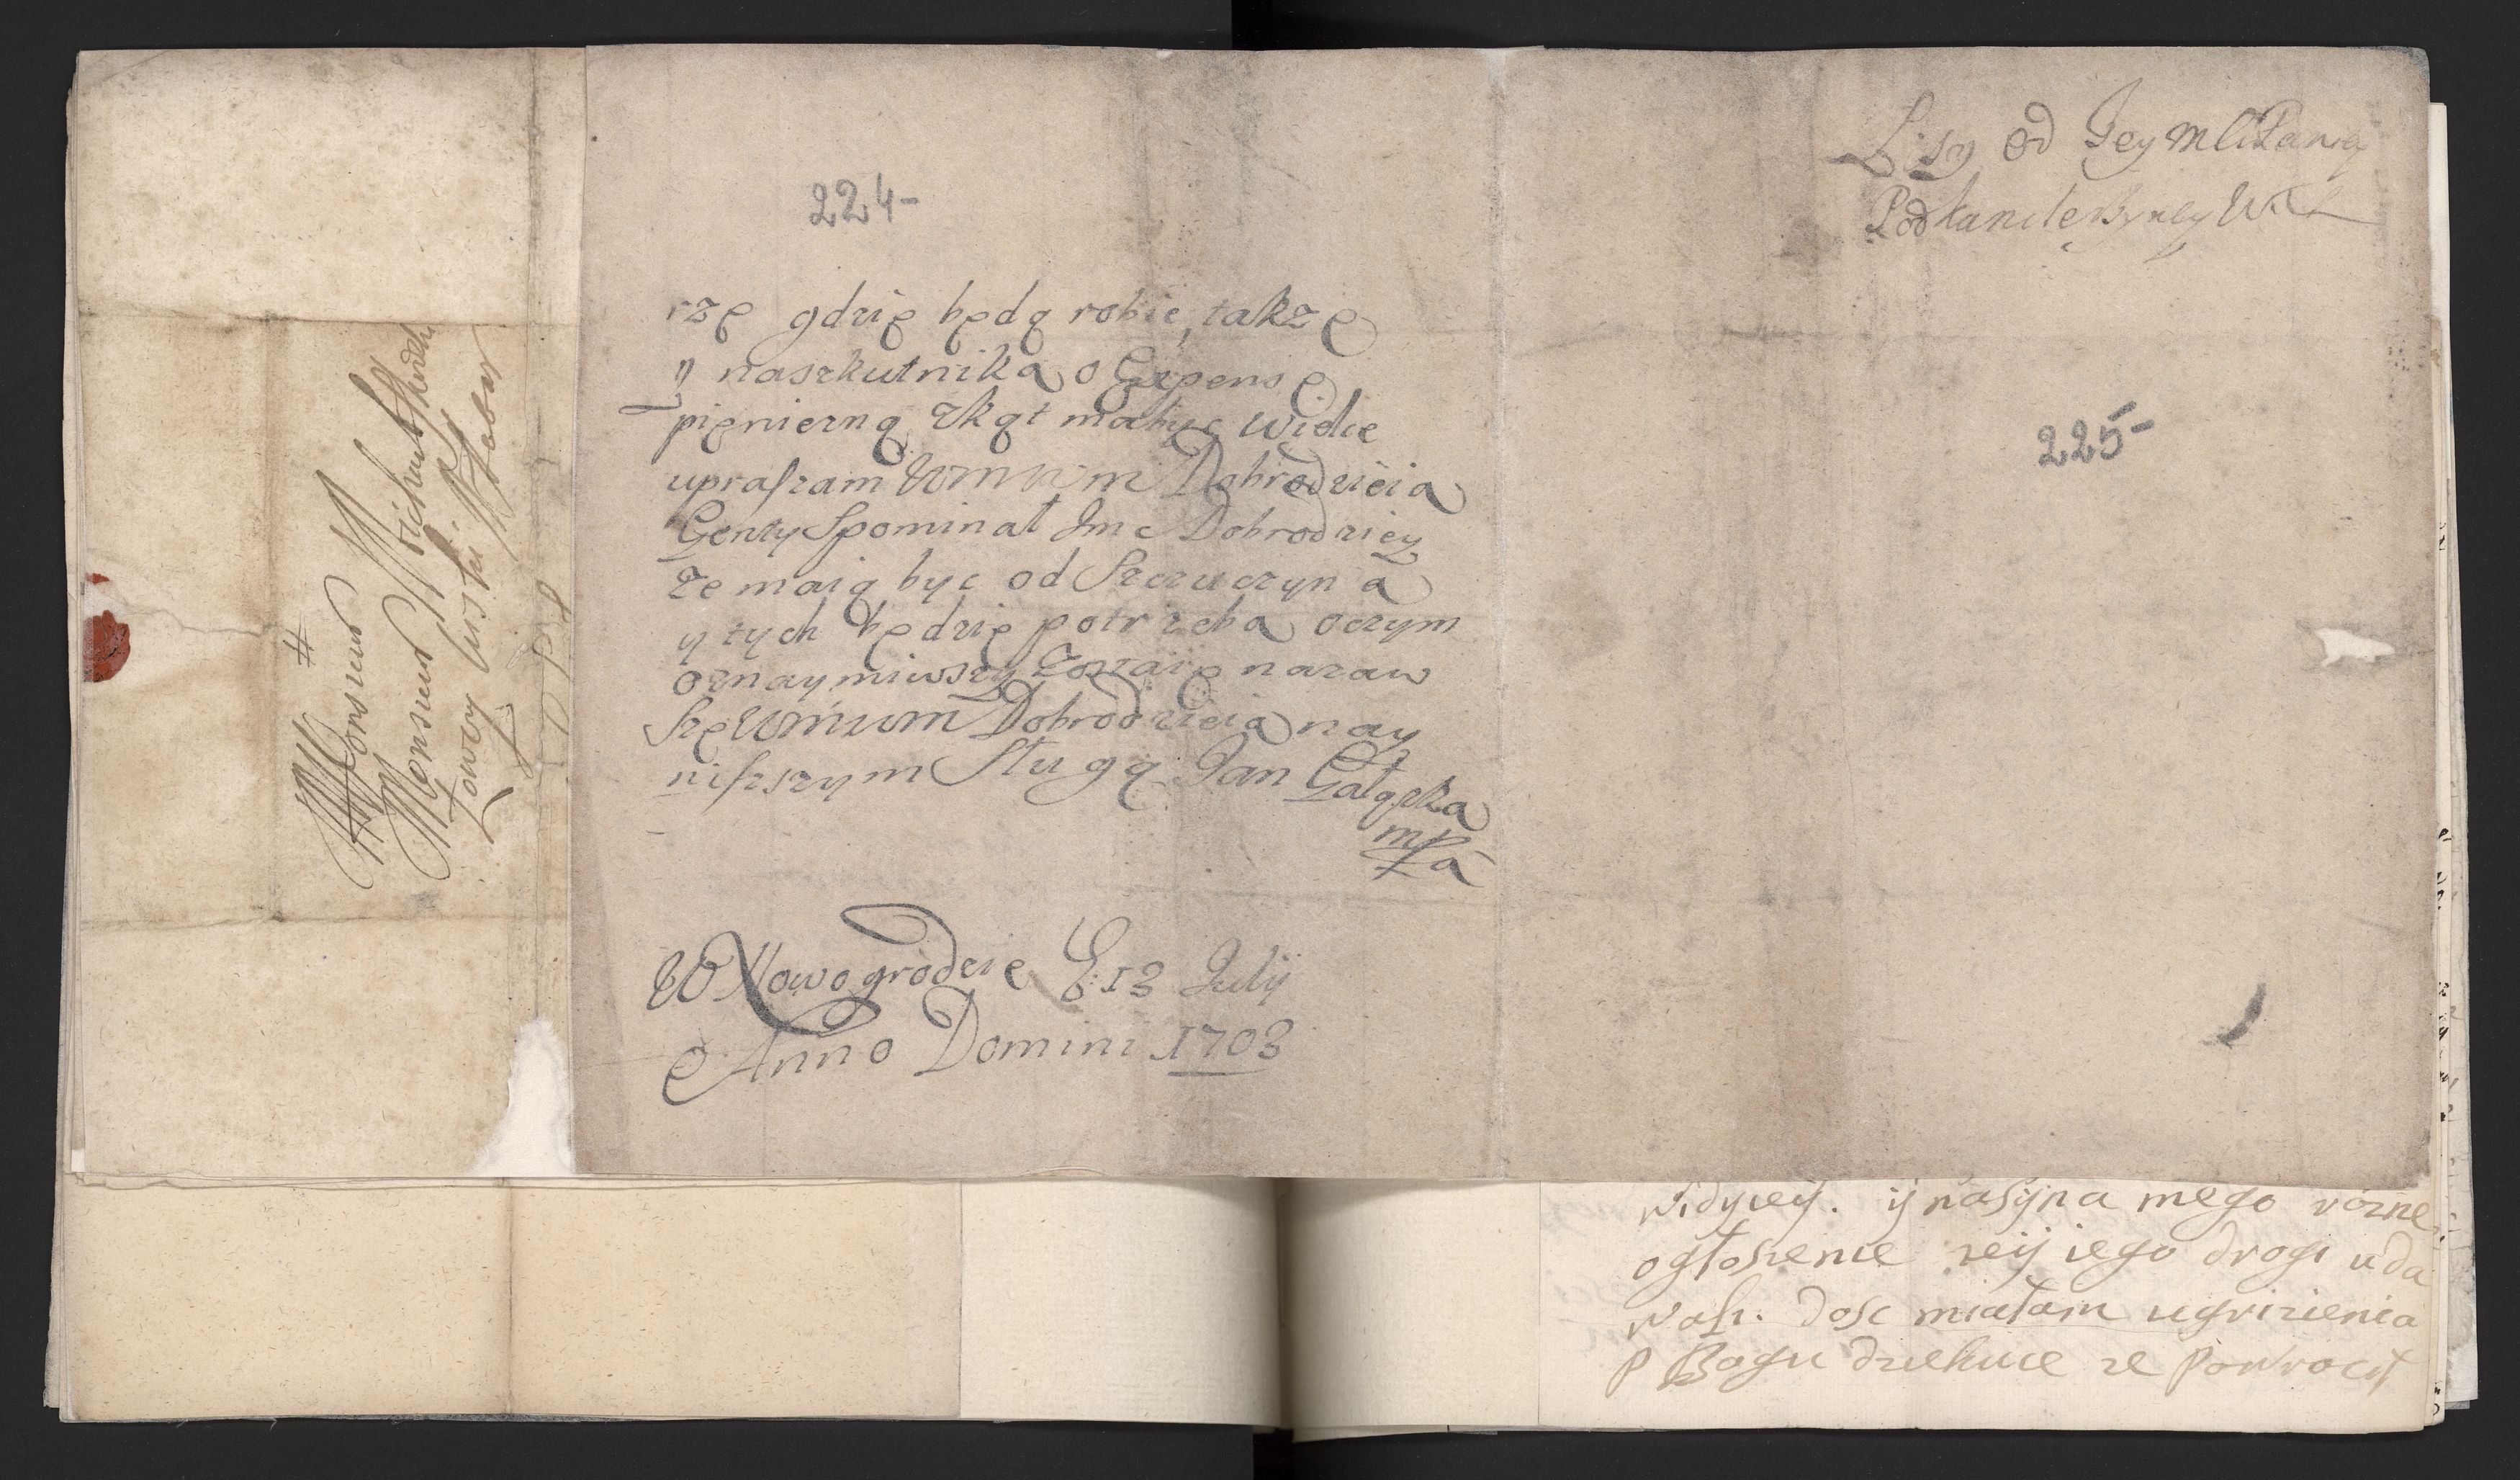 Monsieur
Monsieur
Łowczy
224-
rzę gdzię będą robic, takzę
y naszkutnika o Expensę
pięnierną zkąt mabyc wielce
upraszam WMM Dobrodzieia
Genty Spominał Jmc Dobrodziey
ze maią byc od Szczuczyna
y tych będzię potrzeba oczym
oznaymiwszy Zostaię nazaw
szę WMMM Dobrodzieia nay
niszszym Sługą Jan Gałąska
mpa
W Nowogrodzie D: 13 Julij
Anno Domini 1703
Lisy od Jey Mć Paniey
Podkanclerzyney W X L
225-
ij nasyna mego rozne
ogłoszenie ieij iego drogi uda
wali. dosc miałam ugrizienia
P Bogu dziekuie ze powrocił